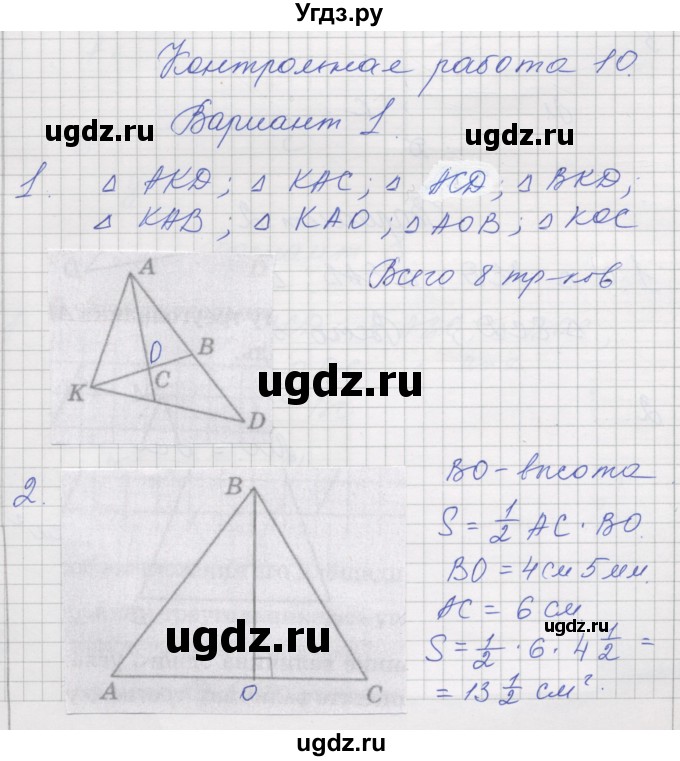 Угдз.ру
Контрольная работа 10.
Вариант 1.
ugdz.ru
ugdz.ru
1. △ AKD; △ KAC; △ ACD; △ BKD;
△ KAB; △ KAO; △ AOB; △ KOC
Всего 8 тр-ков
A
O
B
C
K
D
ugdz.ru
2.
B
A
O
C
ugdz.ru
BO - высота
S = 1/2 AC · BO.
BO = 4 см 5 мм.
AC = 6 см
ugdz.ru
S = 1/2 · 6 · 4 1/2 =
= 13 1/2 см².
ugdz.ru